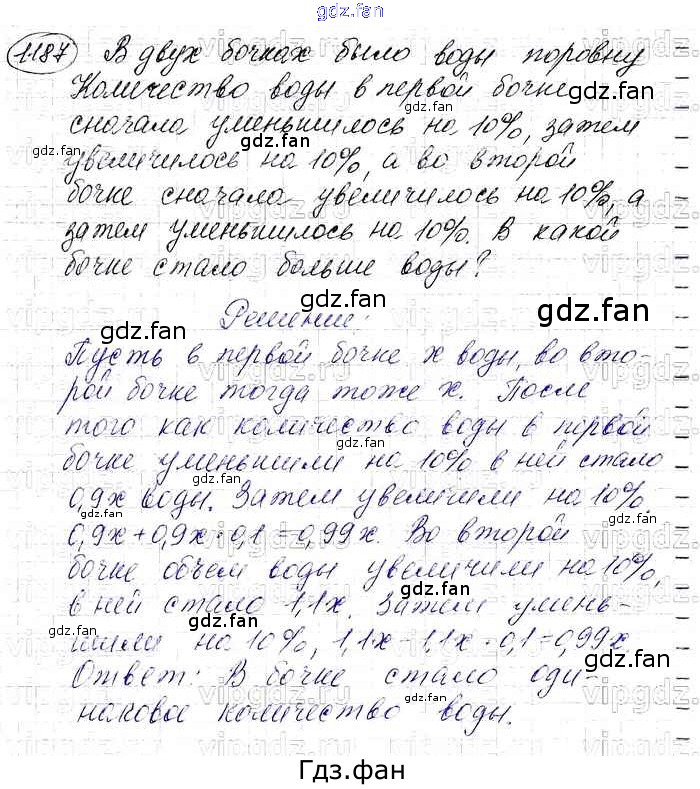 gdz.fan
1187 В двух бочках было воды поровну
Количество воды в первой бочке
сначала уменьшилось на 10%, затем
увеличилось на 10%, а во второй
бочке сначала увеличилось на 10%, а
затем уменьшилось на 10%. В какой
бочке стало больше воды?
Решение:
Пусть в первой бочке x воды, во вто-
рой бочке тогда тоже x. После
того как количество воды в первой
бочке уменьшили на 10% в ней стало
0,9x воды. Затем увеличили на 10%.
0,9x+0,9x·0,1=0,99x. Во второй
бочке объем воды увеличили на 10%,
в ней стало 1,1x. Затем умень-
шили на 10%, 1,1x-1,1x·0,1=0,99x
Ответ: В бочке стало оди-
наковое количество воды.
Гдз.фан